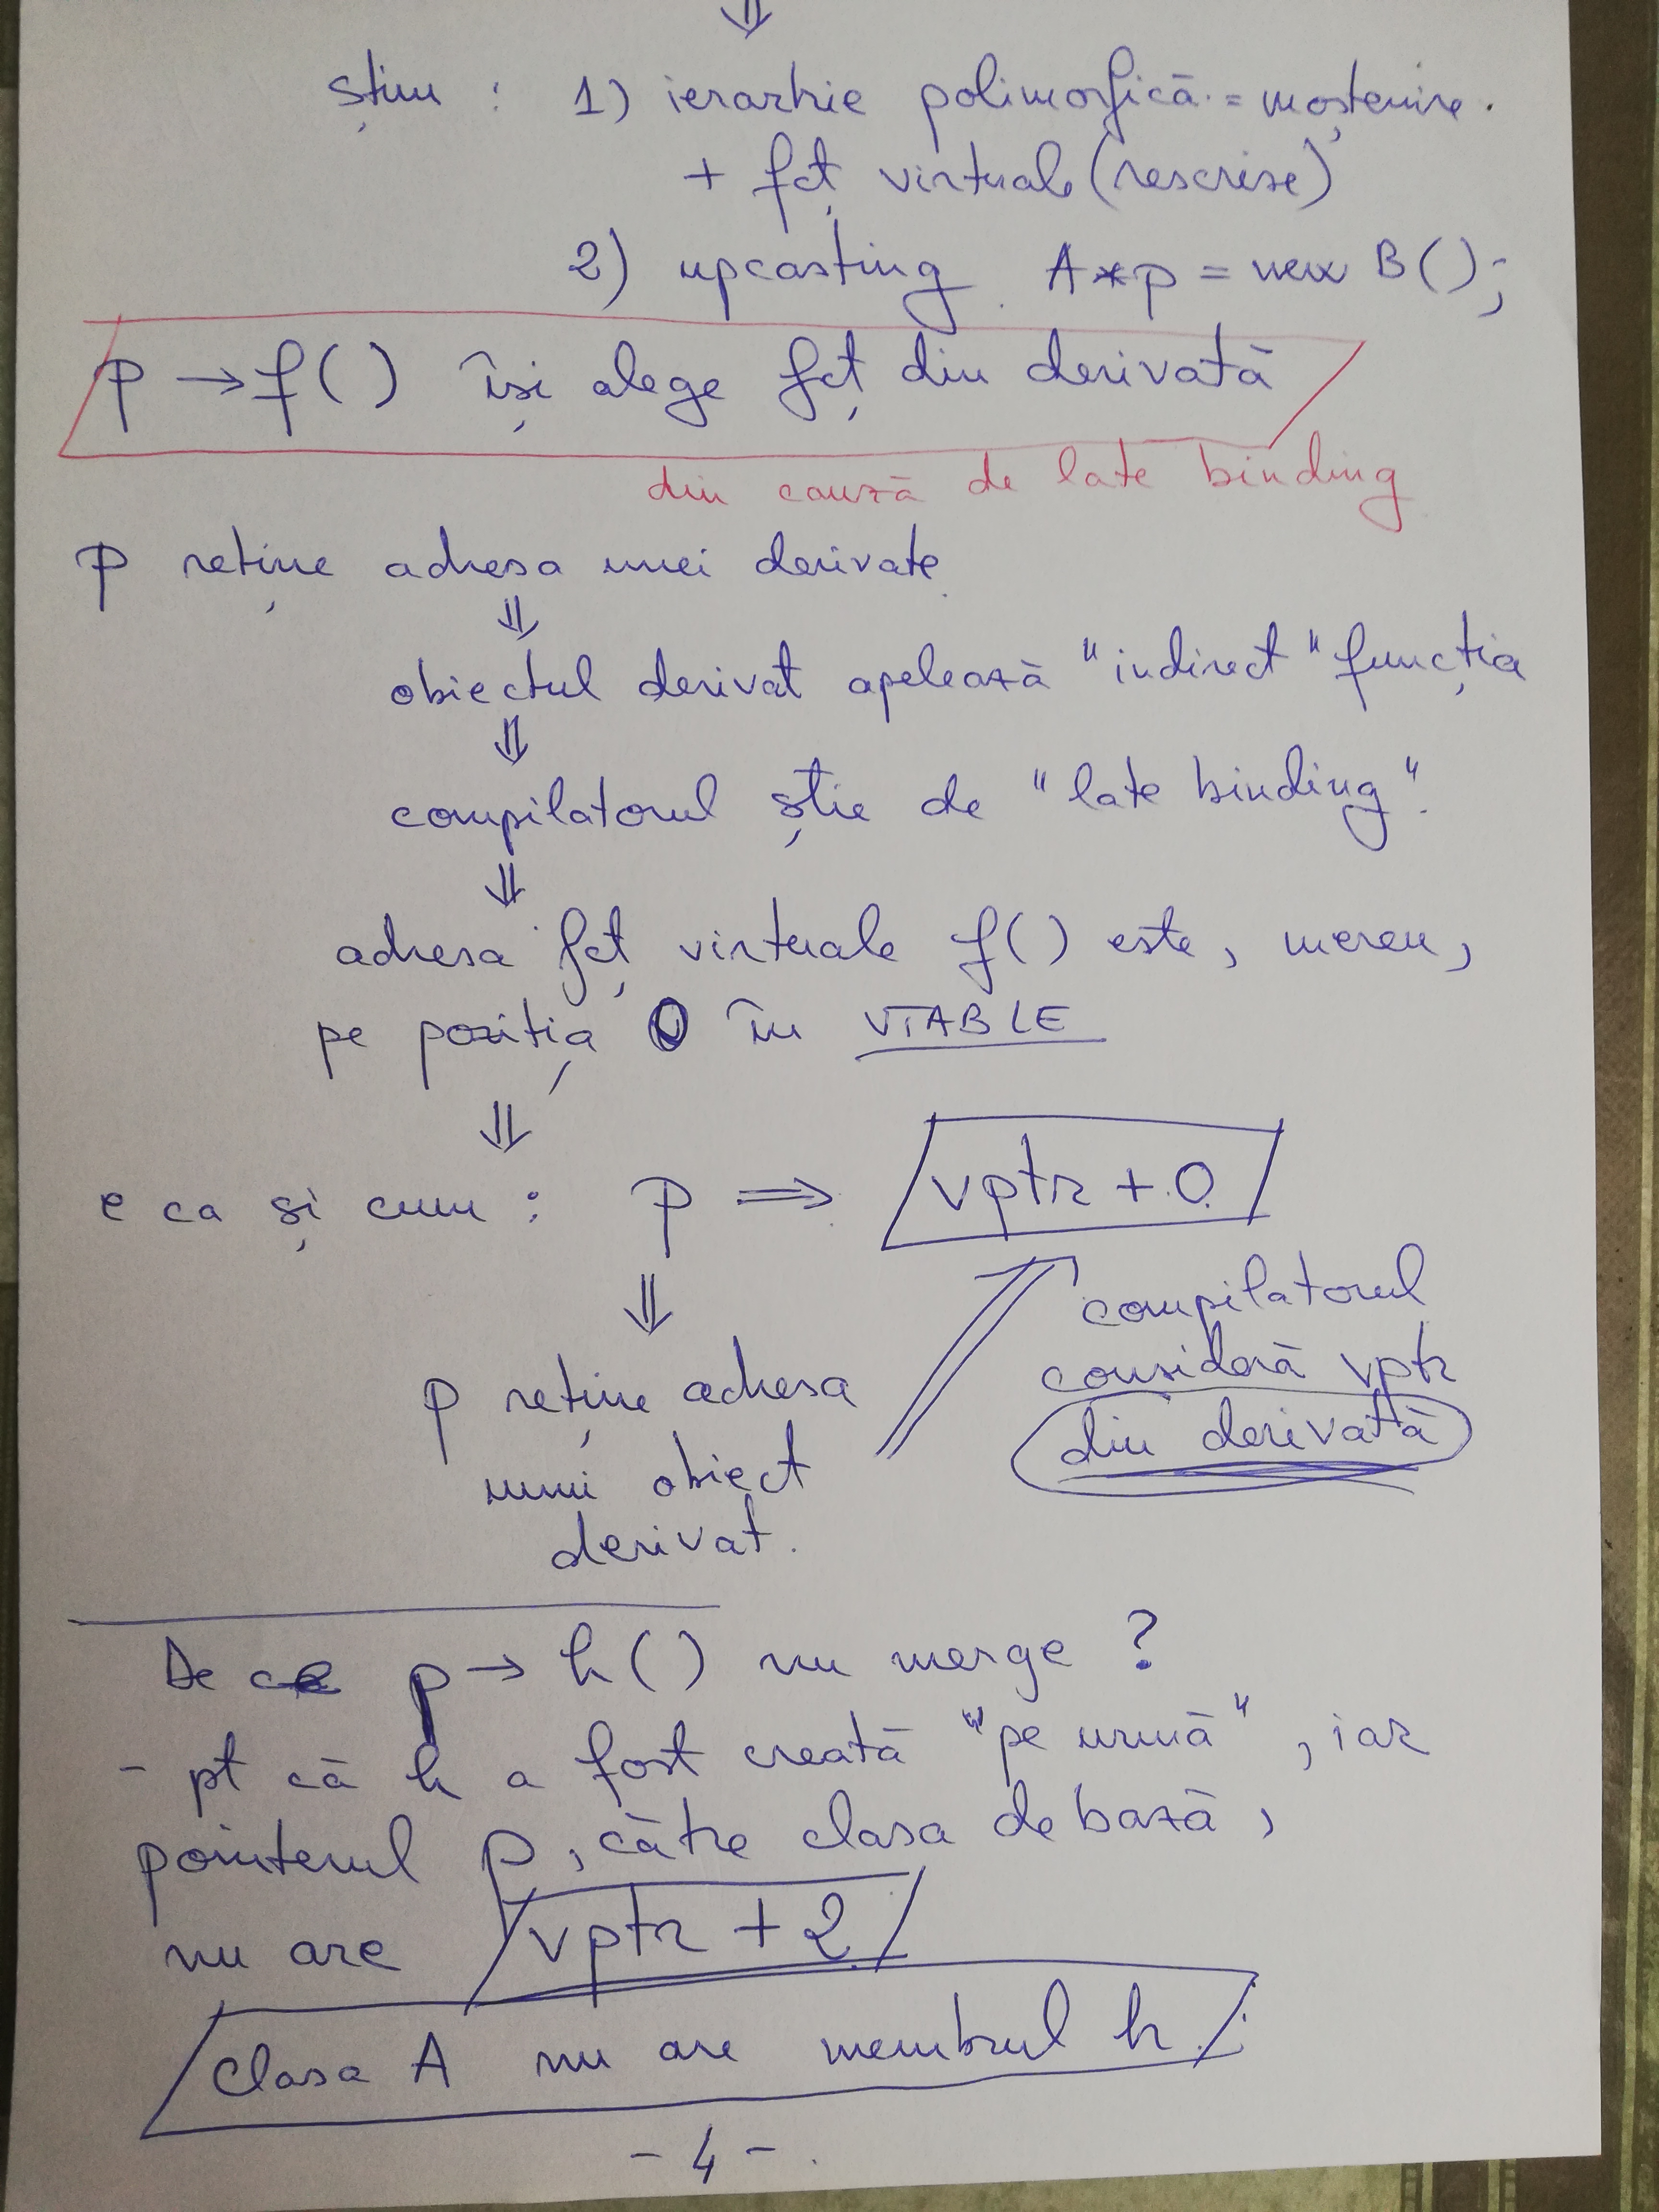 ⇓
știm : 1) ierarhie polimorfică = moștenire.
+ fcț virtuale (rescrise)
2) upcasting A*p = new B();
p → f( ) își alege fcț din derivată
din cauză de late binding
p reține adresa unei derivate
⇓
obiectul derivat apelează "indirect" funcția
⇓
compilatorul știe de "late binding".
⇓
adresa fcț virtuale f() este, mereu,
pe poziția 0 în VTABLE
⇓
e ca și cum : p ⟹ vptr + 0
⇓
compilatorul
consideră vptr
din derivată
p reține adresa
unui obiect
derivat.
De ce p → h( ) nu merge ?
- pt că h a fost creată "pe urmă", iar
pointerul p, către clasa de bază,
nu are vptr + 2
clasa A nu are membrul h.
- 4 -.